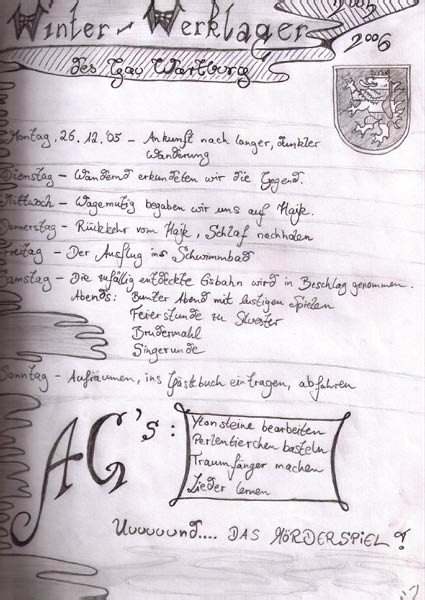 Winter-Werklager
2005
2006
des Gau Wartburg
Montag, 26.12.'05 - Ankunft nach langer, dunkler
Wanderung
Dienstag - Wandernd erkundeten wir die Gegend.
Mittwoch - Wagemutig begaben wir uns auf Hajk.
Donnerstag - Rückkehr vom Hajk, Schlaf nachholen
Freitag - Der Ausflug ins Schwimmbad
Samstag - Die zufällig entdeckte Eisbahn wird in Beschlag genommen.
Abends: Bunter Abend mit lustigen Spielen
Feierstunde zu Silvester
Brudermahl
Singerunde
Sonntag - Aufräumen, ins Gästebuch eintragen, abfahren
AG's:
Ytonsteine bearbeiten
Perlentierchen basteln
Traumfänger machen
Lieder lernen
Uuuuuund.... DAS MÖRDERSPIEL!